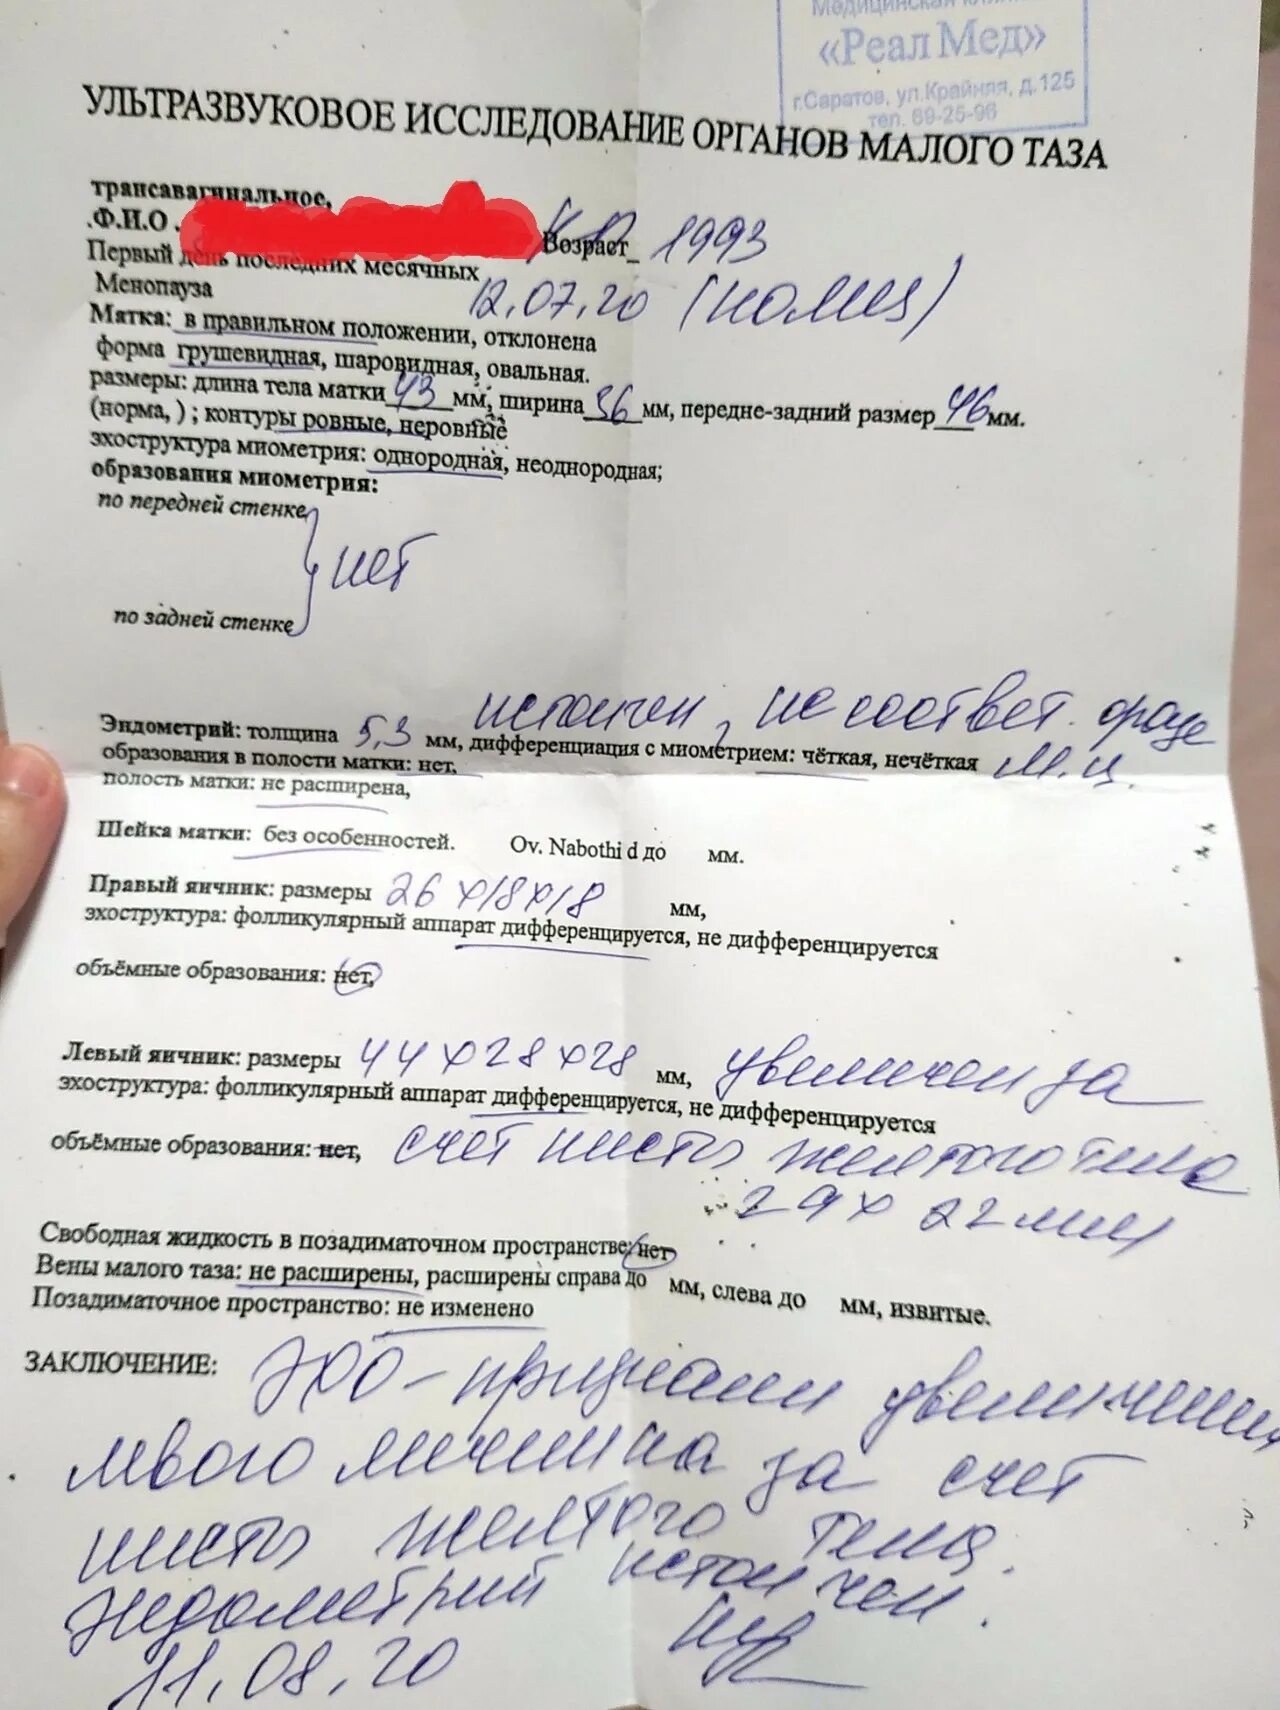 Медицинская
«Реал Мед»
г.Саратов, ул.Крайняя, д.125
тел. 69-25-96
УЛЬТРАЗВУКОВОЕ ИССЛЕДОВАНИЕ ОРГАНОВ МАЛОГО ТАЗА
трансавагинальное,
.Ф.И.О . Возраст_ 1993
Первый день последних месячных
Менопауза 12.07.20 (28мц)
Матка: в правильном положении, отклонена
форма грушевидная, шаровидная, овальная.
размеры: длина тела матки 43 мм, ширина 36 мм, передне-задний размер 46 мм.
(норма, ) ; контуры ровные, неровные
эхоструктура миометрия: однородная, неоднородная;
образования миометрия:
по передней стенке
нет
по задней стенке
истончен, не соответ. фазе
Эндометрий: толщина 5,3 мм, дифференциация с миометрием: чёткая, нечёткая м.ц.
образования в полости матки: нет,
полость матки: не расширена,
Шейка матки: без особенностей. Ov. Nabothi d до мм.
Правый яичник: размеры 26х18х18 мм,
эхоструктура: фолликулярный аппарат дифференцируется, не дифференцируется
объёмные образования: нет,
Левый яичник: размеры 44х28х28 мм, увеличен за
эхоструктура: фолликулярный аппарат дифференцируется, не дифференцируется
объёмные образования: нет, счет кисты желтого тела
29х22мм
Свободная жидкость в позадиматочном пространстве: нет
Вены малого таза: не расширены, расширены справа до мм, слева до мм, извитые.
Позадиматочное пространство: не изменено
ЗАКЛЮЧЕНИЕ: ЭХО-признаки увеличения
левого яичника за счет
кисты желтого тела.
Эндометрий истончен.
11.08.20